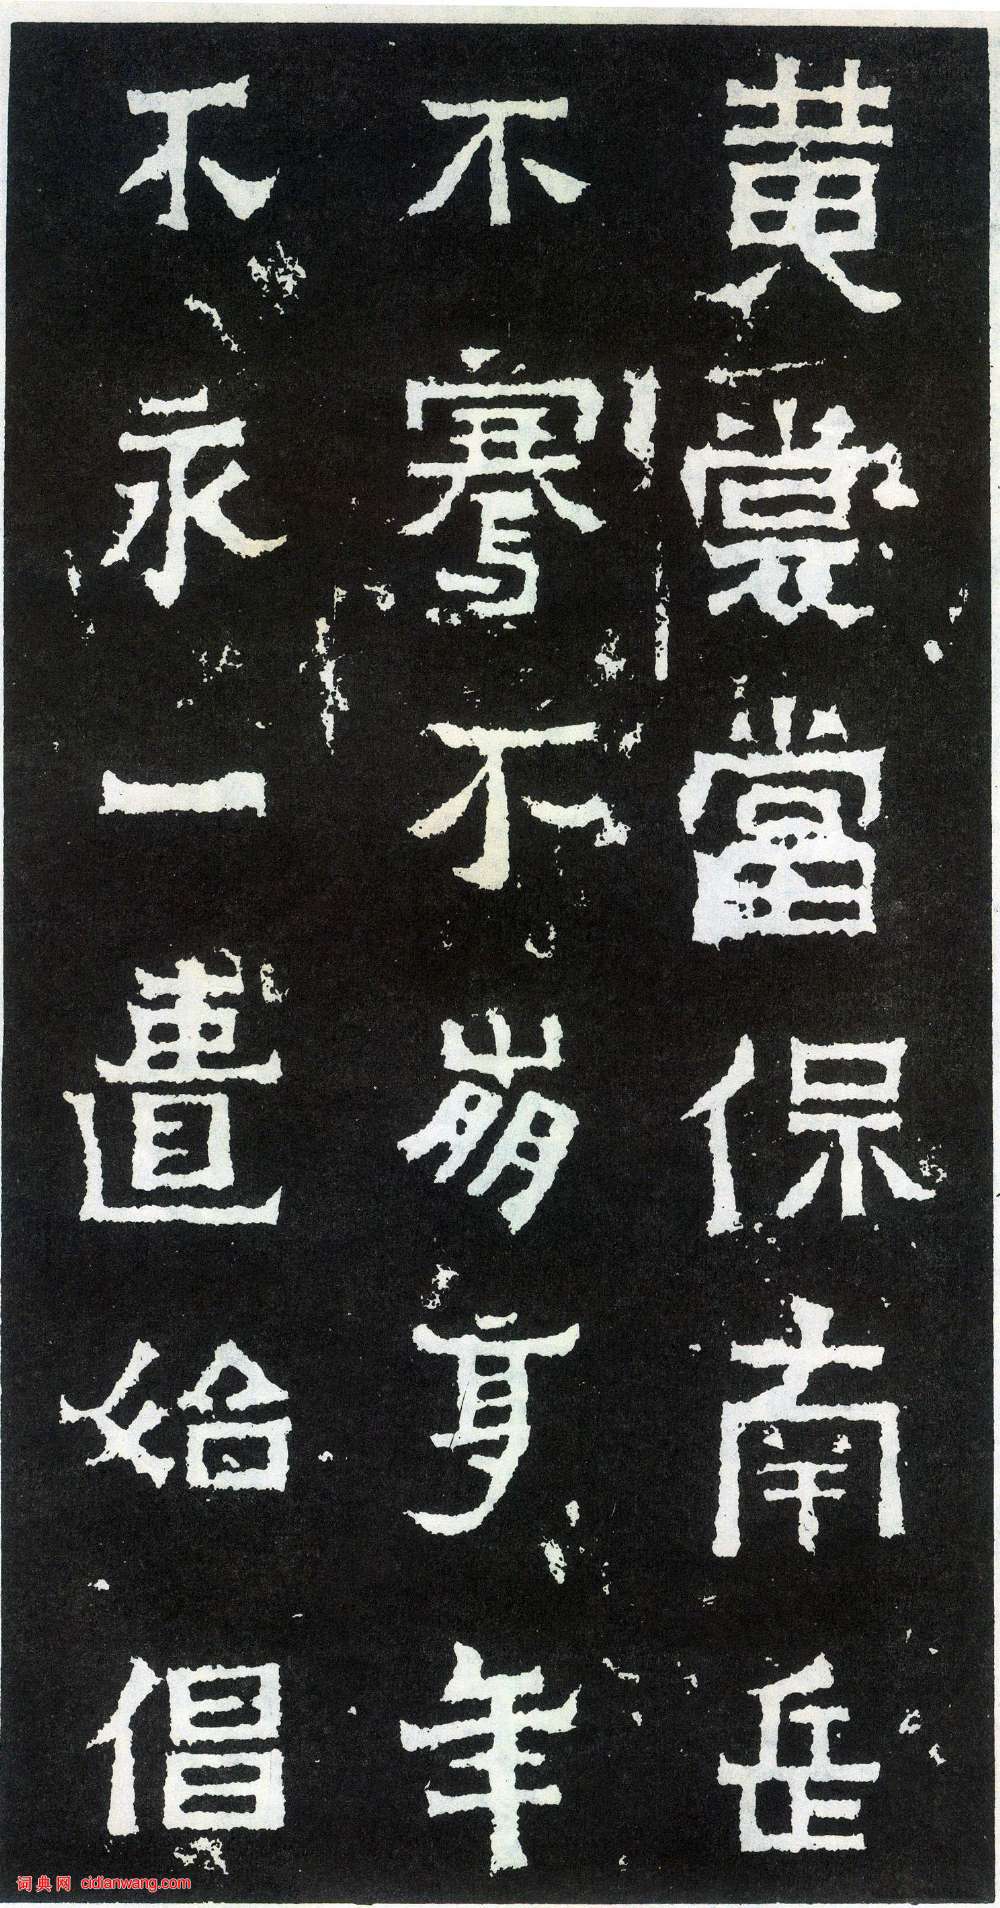 黄裳當保南岳
不騫不崩享年
不永一匱始倡
词典网 cidianwang.com